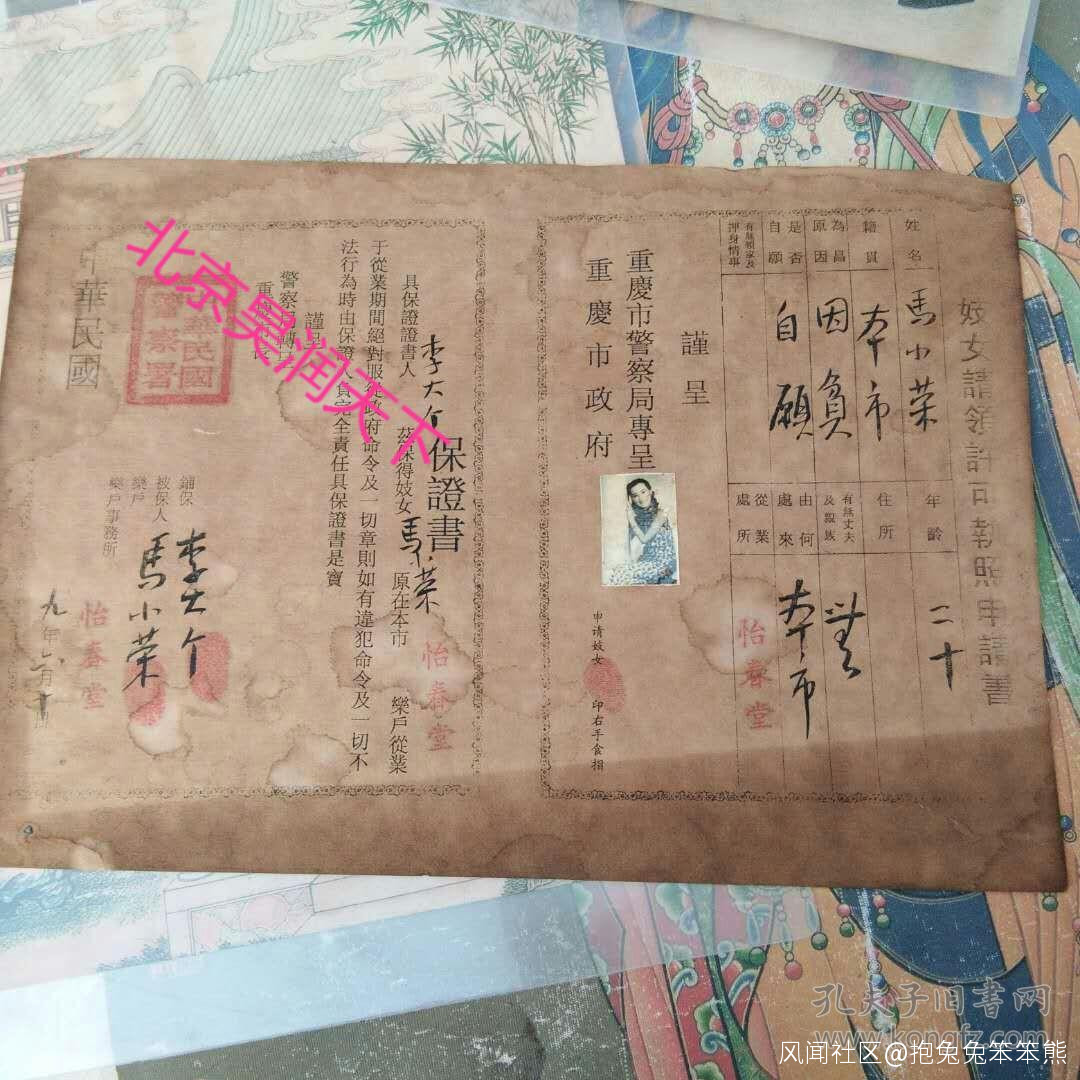 妓女請領許可執照申請書
姓名
馬小荣
年齡
二十
籍貫
本市
住所
為昌原因
因負
有無丈夫及親族
無
是否自願
自願
由何處來
本市
有無領家及押身情事
從業處所
怡春堂
謹呈
重慶市警察局專呈
重慶市政府
申请妓女
印右手食捐
保證書
具保證證書人
李大个
茲保得妓女
馬小荣
原在本市
怡春堂
樂戶從業
于從業期間絕對服從政府命令及一切章則如有違犯命令及一切不
法行為時由保證人負完全責任具保證書是實
謹呈
警察局轉呈
鋪保
李大个
被保人
馬小荣
樂戶
樂戶事務所
怡春堂
中華民國
九年六月十
北京昊润天下
孔夫子旧书网
www.kongfz.com
风闻社区@抱兔兔笨笨熊